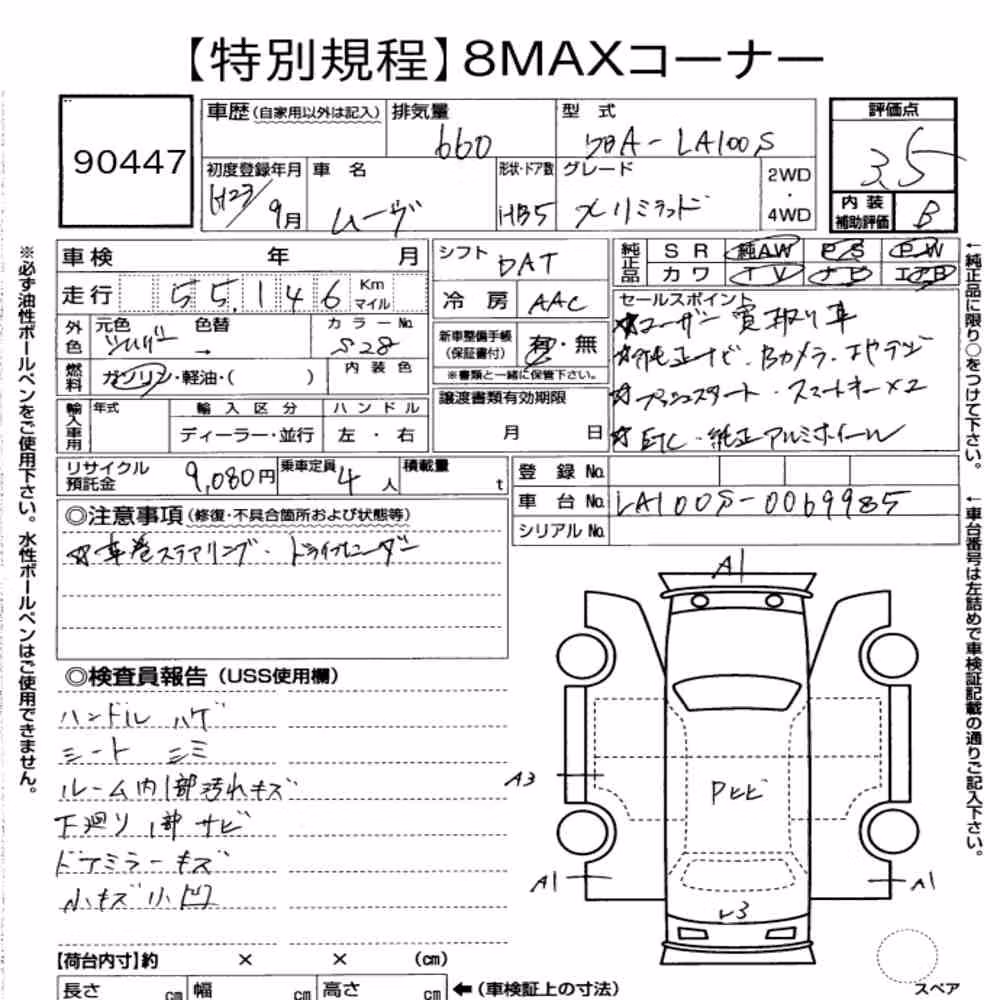 【特別規程】8MAXコーナー
90447
車歴(自家用以外は記入)
排気量 660
型式 DBA-LA100S
評価点 3.5
初度登録年月 H23/9月
車名 ムーヴ
形状・ドア数 HB5
グレード メリミテッド
2WD・4WD
内装補助評価 B
車検 年 月
シフト DAT
純正品 SR 純AW P/S P/W
カワ TV ナビ エアB
走行 55,146 Km マイル
冷房 AAC
セールスポイント
☆ユーザー買取り車
☆純正ナビ・Bカメラ・
☆プッシュスタート・スマートキー×2
☆ETC・純正アルミホイール
外色 元色 色替
カラーNo. S28
新車整備手帳(保証書付) 有・無
※書類と一緒に保管下さい。
燃料 ガソリン・軽油・( )
内装色
譲渡書類有効期限
月 日
輸入車用 年式
輸入区分 ハンドル
ディーラー・並行 左・右
リサイクル預託金 9,080円
乗車定員 4人
積載量 t
登録No.
車台No. LA100S-0069985
シリアルNo.
◎注意事項(修復・不具合箇所および状態等)
☆革巻ステアリング・ドライブレコーダー
◎検査員報告(USS使用欄)
ハンドル ハゲ
シート シミ
ルーム内1部汚れキズ
下廻り1部サビ
ドアミラーキズ
小キズ小凹
A1
A3
A1
A1
【荷台内寸】約 × × (cm)
長さ cm 幅 cm 高さ cm ←(車検証上の寸法)
スペア
※必ず油性ボールペンをご使用下さい。水性ボールペンはご使用できません。
←純正品に限り○をつけて下さい。
←車台番号は左詰めで車検証記載の通りご記入下さい。